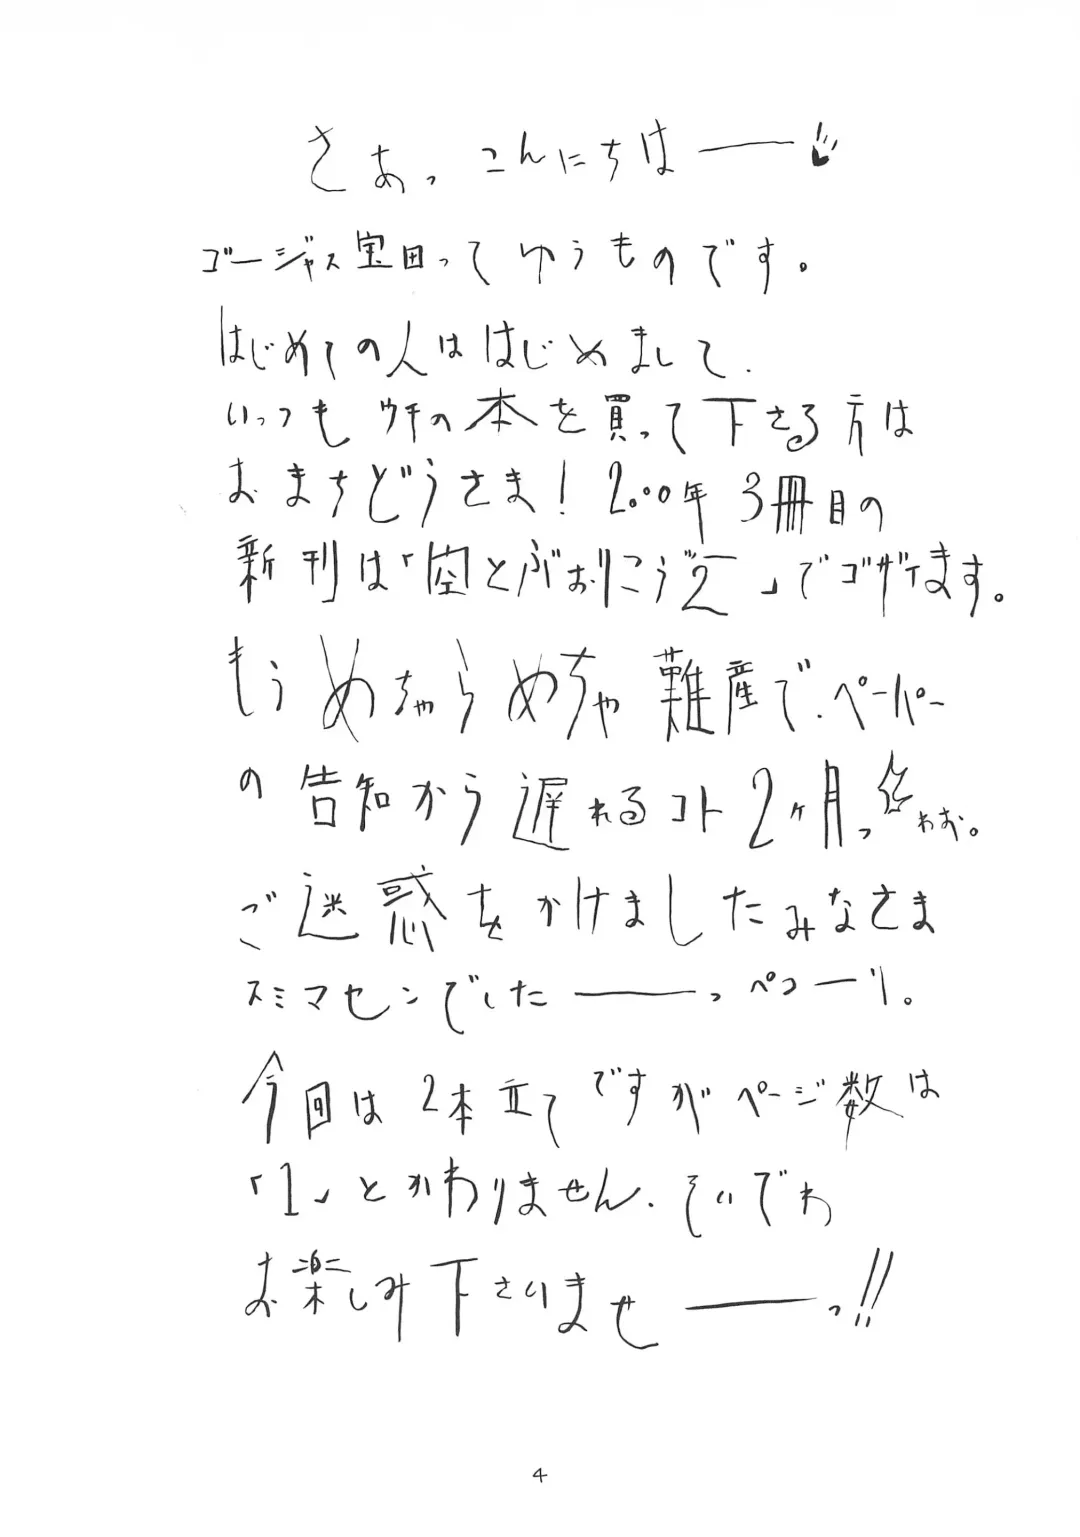 さぁっ こんにちはーー!!
ゴージャス宝田ってゆうものです。
はじめての人ははじめまして.
いっつもウチの本を買って下さる方は
おまちどうさま! 2000年 3冊目の
新刊は「空とぶおりこう2」でゴザイます。
もうめちゃらめちゃ難産で.ペーパー
の告知から遅れるコト2ヶ月っ わお。
ご迷惑をかけましたみなさま
スミマセンでしたーーっ ペコーリ。
今回は2本立てですがページ数は
「1」とかわりません. そいでわ
お楽しみ下さいませーーっ!!
4